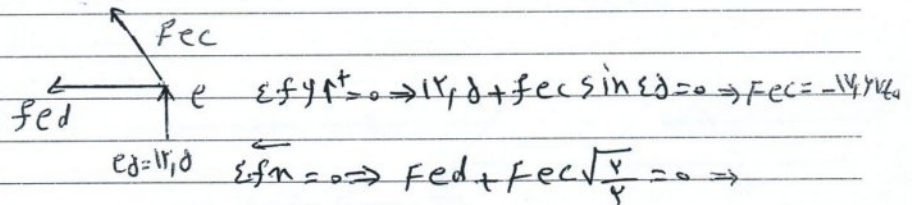 Fec
fed
e Σfy↑⁺=0 ⇒ ۱۲,۵ + fec sin ۴۵=0 ⇒ Fec= -۱۷,۶۷
e۵=۱۲,۵
Σfx = 0 ⇒ Fed + Fec √۲/۲ = 0 ⇒